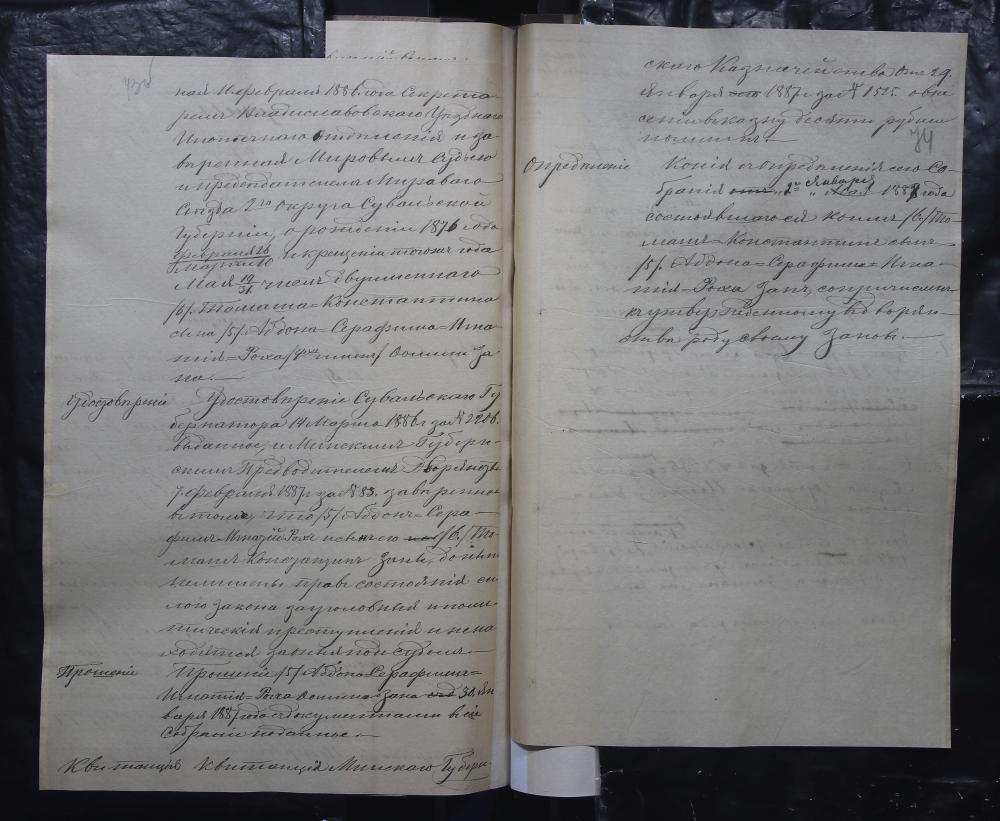 ная 11 февраля 1886 года Секрета-
ремъ Владиславовскаго Уѣзднаго
Ипотечнаго отдѣленія и за-
вѣренная Мировымъ Судьею
и Предсѣдателемъ Мироваго
Съѣзда 2го округа Сувалкской
Губерніи, о рожденіи 1876 года
Февраля 26
Марта 10 и крещеніи тогоже года
Мая 19/31 числъ двуименнаго
/6/. Томаша-Константина
сына /5/. Абдона-Серафима-Игна-
тія-Роха /4хъ именъ/ Осипова За-
на.—
Удостовѣреніе Удостовѣреніе Сувалкскаго Гу-
бернатора 14 Марта 1886 г. за № 2206.
выданное, и Минскимъ Губерн-
скимъ Предводителемъ Дворянства
7. Февраля 1887 г. за № 83. завѣренное
въ томъ, что /5/. Абдонъ-Сера-
фимъ-Игнатій-Рохъ и сынъ его /6/. То-
машъ-Константинъ Заны, донынѣ
нелишены правъ состоянія си-
лою закона за уголовныя и поли-
тическія преступленія и нена-
ходятся за оныя подъ судомъ.—
Прошеніе Прошеніе /5/. Абдона-Серафима-
Игнатія-Роха Осипова Зана 30. Ян-
варя 1887 года съ документами въ сіе
Собраніе поданное.—
Квитанція Квитанція Минскаго Губерн-
скаго Казначейства отъ 29.
Января 1887 г. за № 1525. о вне-
сеніи въ казну десяти рублей
пошлинъ.—
74
Опредѣленіе Копія съ опредѣленія сего Со-
бранія „2" Января 1888 года
состоявшагося коимъ /6/. То-
машъ-Константинъ сынъ
/5/. Абдона-Серафима-Игна-
тія-Роха Занъ, сопричисленъ
къ утвержденному въ дворян-
ствѣ роду своему Зановъ.—